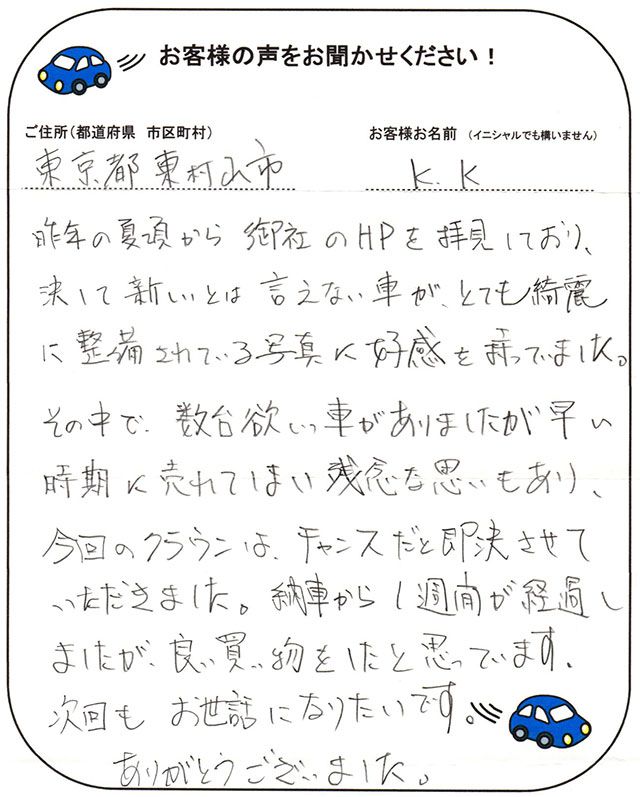 お客様の声をお聞かせください！
ご住所（都道府県 市区町村） お客様お名前 （イニシャルでも構いません）
東京都東村山市 K.K
昨年の夏頃から 御社のHPを拝見しており、
決して新しいとは言えない車が、とても綺麗
に整備されている写真に好感を持っていました。
その中で、数台欲しい車がありましたが早い
時期に売れてしまい残念な思いもあり、
今回のクラウンは、チャンスだと即決させて
いただきました。納車から1週間が経過し
ましたが、良い買い物をしたと思っています。
次回もお世話になりたいです。
ありがとうございました。